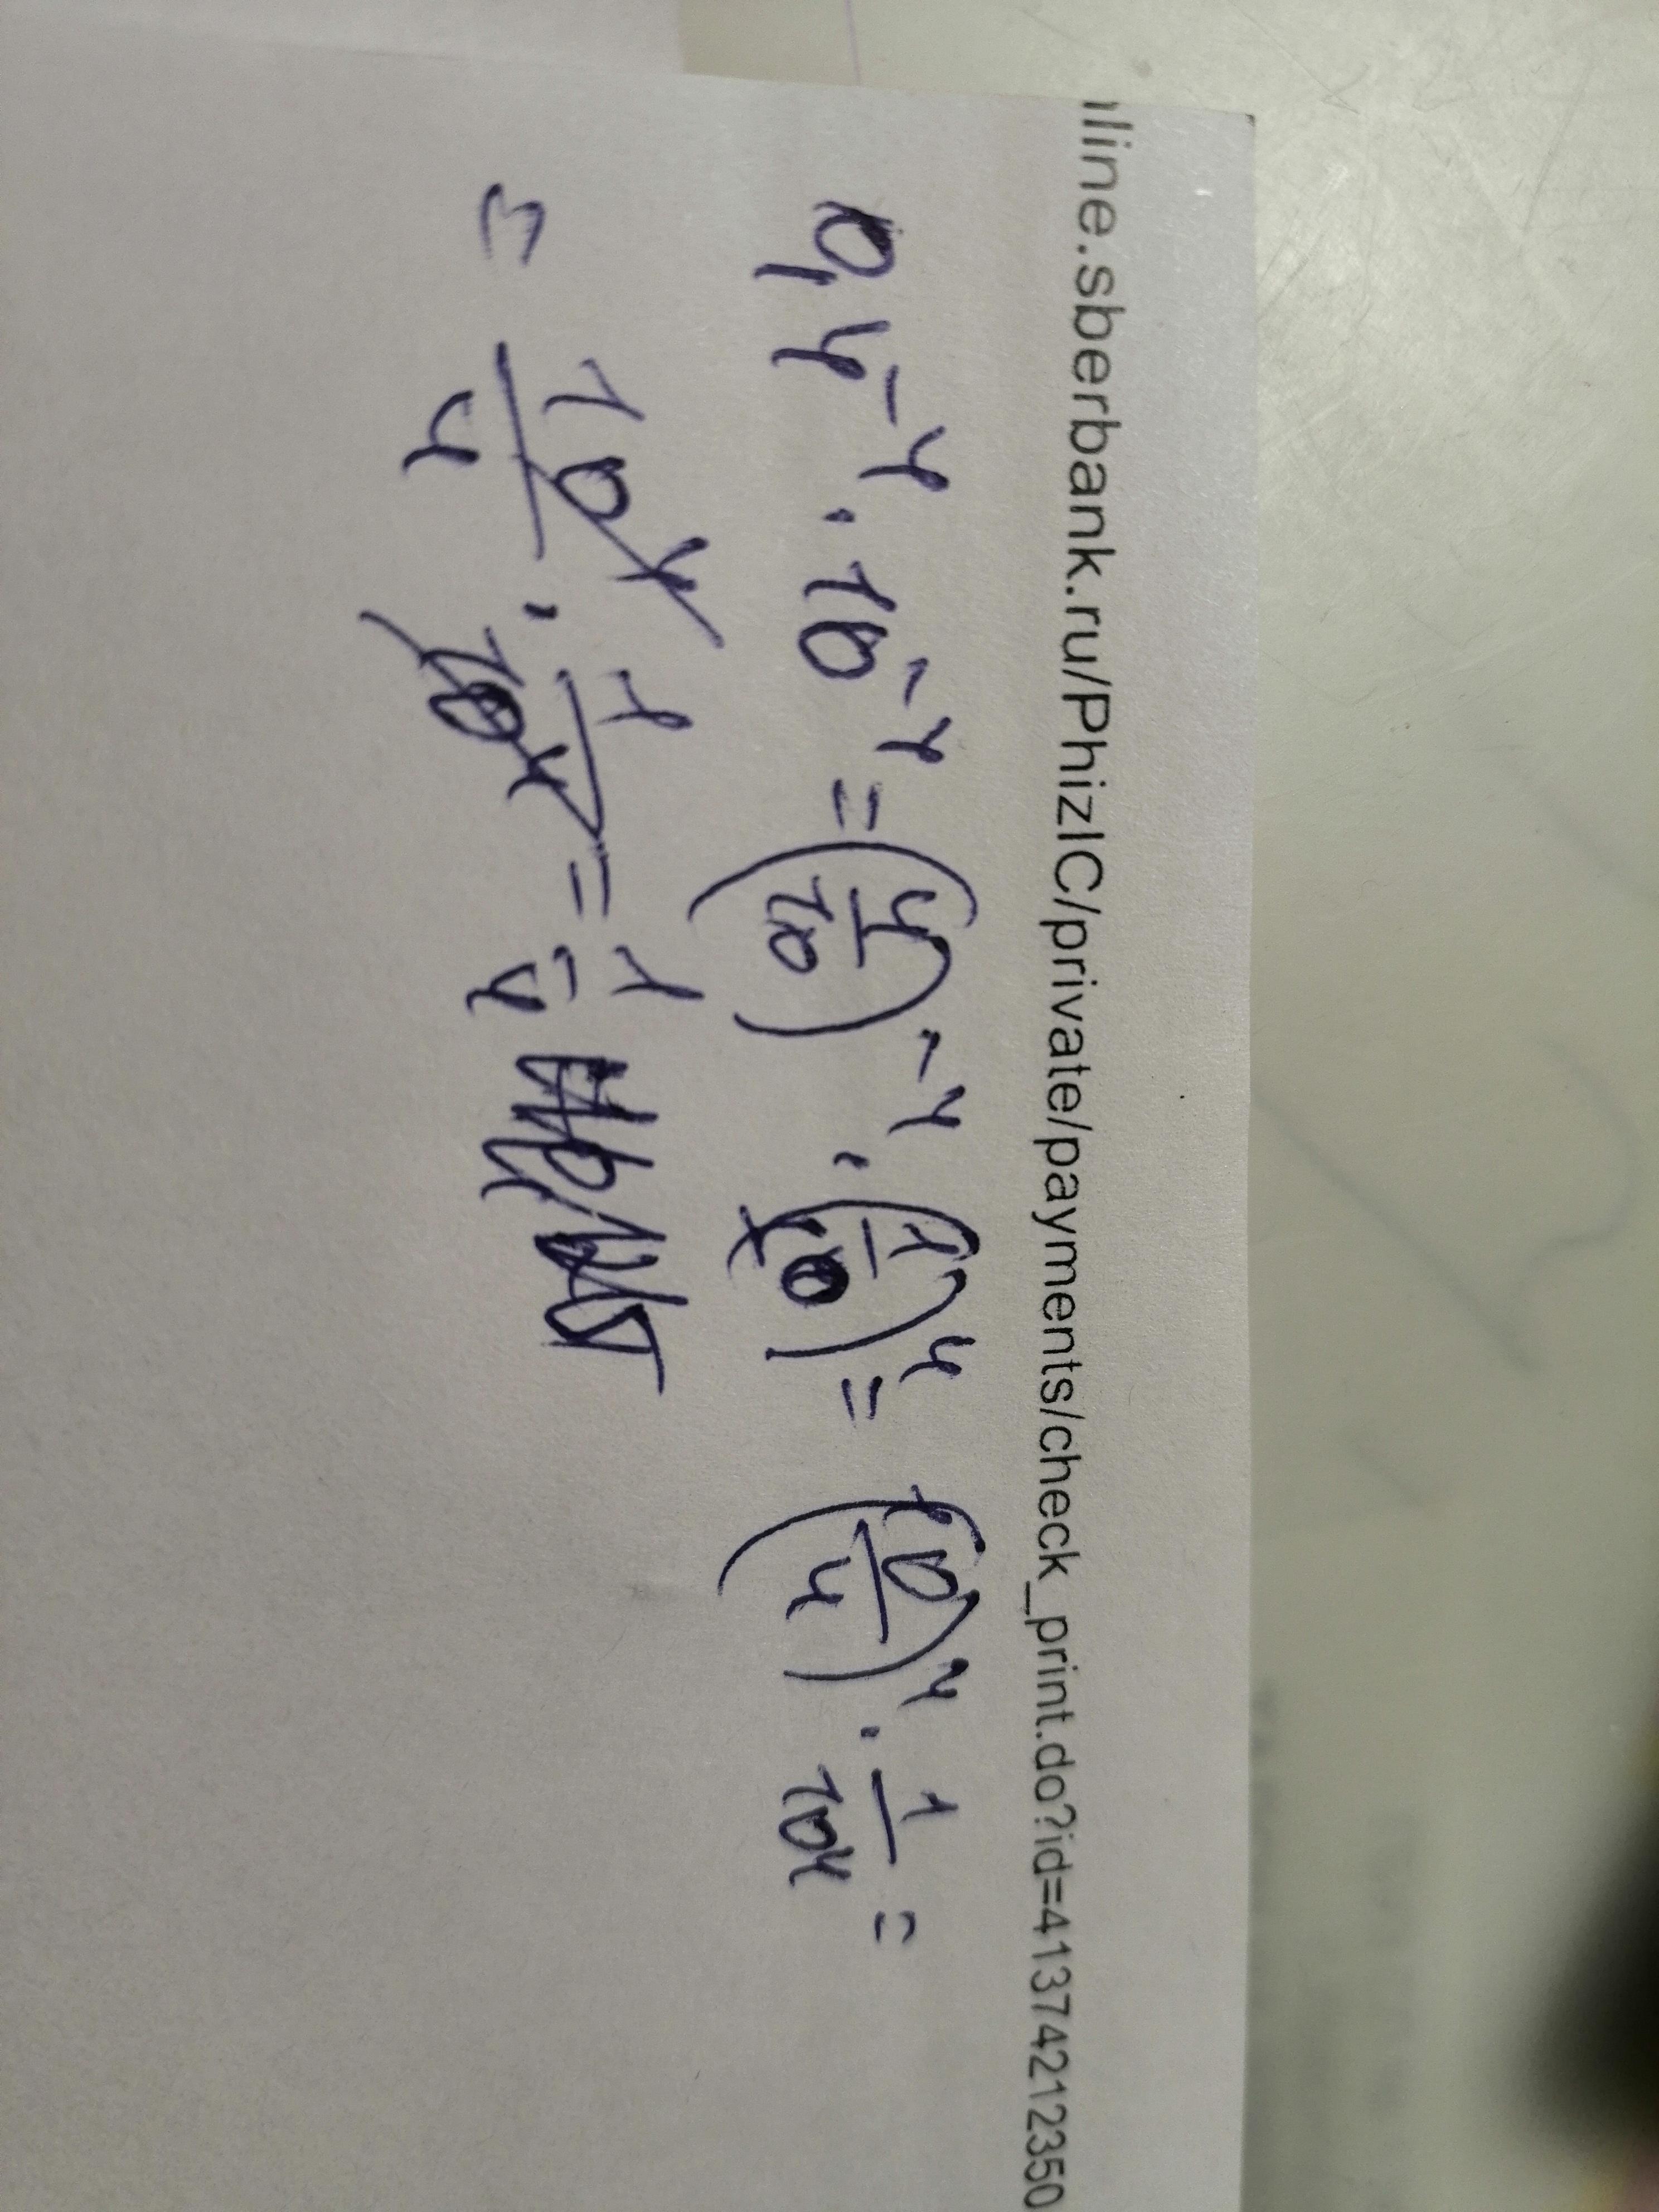 nline.sberbank.ru/PhizIC/private/payments/check_print.do?id=41374212350
0,4⁻⁴ · 10⁻⁴ = (4/10)⁻⁴ · (1/10)⁴ = (10/4)⁴ · 1/10⁴ =
= 10⁴/4 · 1/10⁴ = 1/4